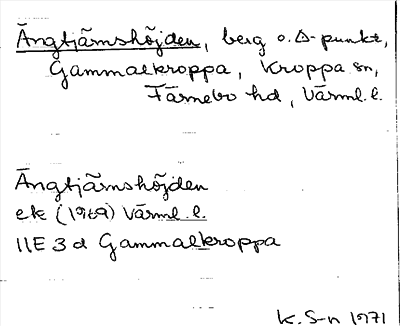 Ängtjärnshöjden, berg o. Δ-punkt,
Gammalkroppa, Kroppa sn,
Färnebo hd, Värml. l.
Ängtjärnshöjden
ek (1969) Värml. l.
11E 3 d Gammalkroppa
K. S-n 1971